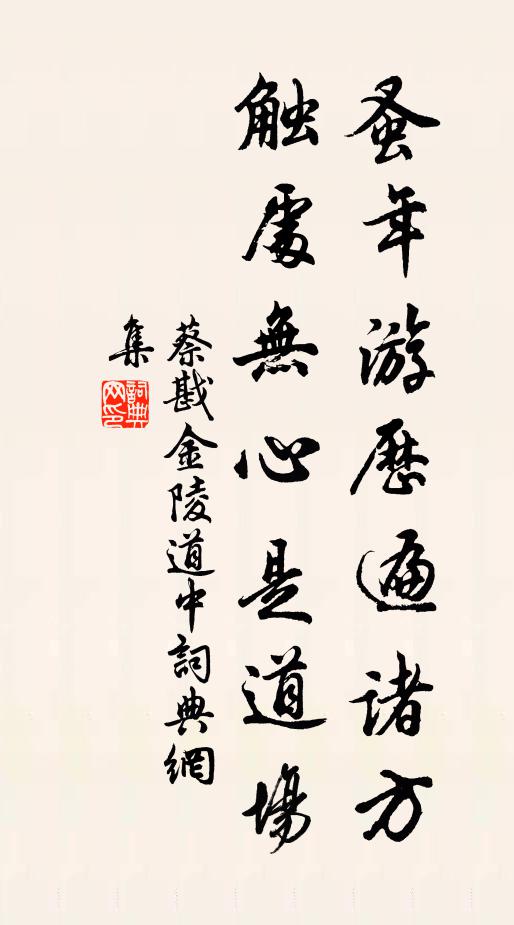 蚤年游歷遍諸方
觸處無心是道場
蔡戡金陵道中詞典網
集
詞典
网印